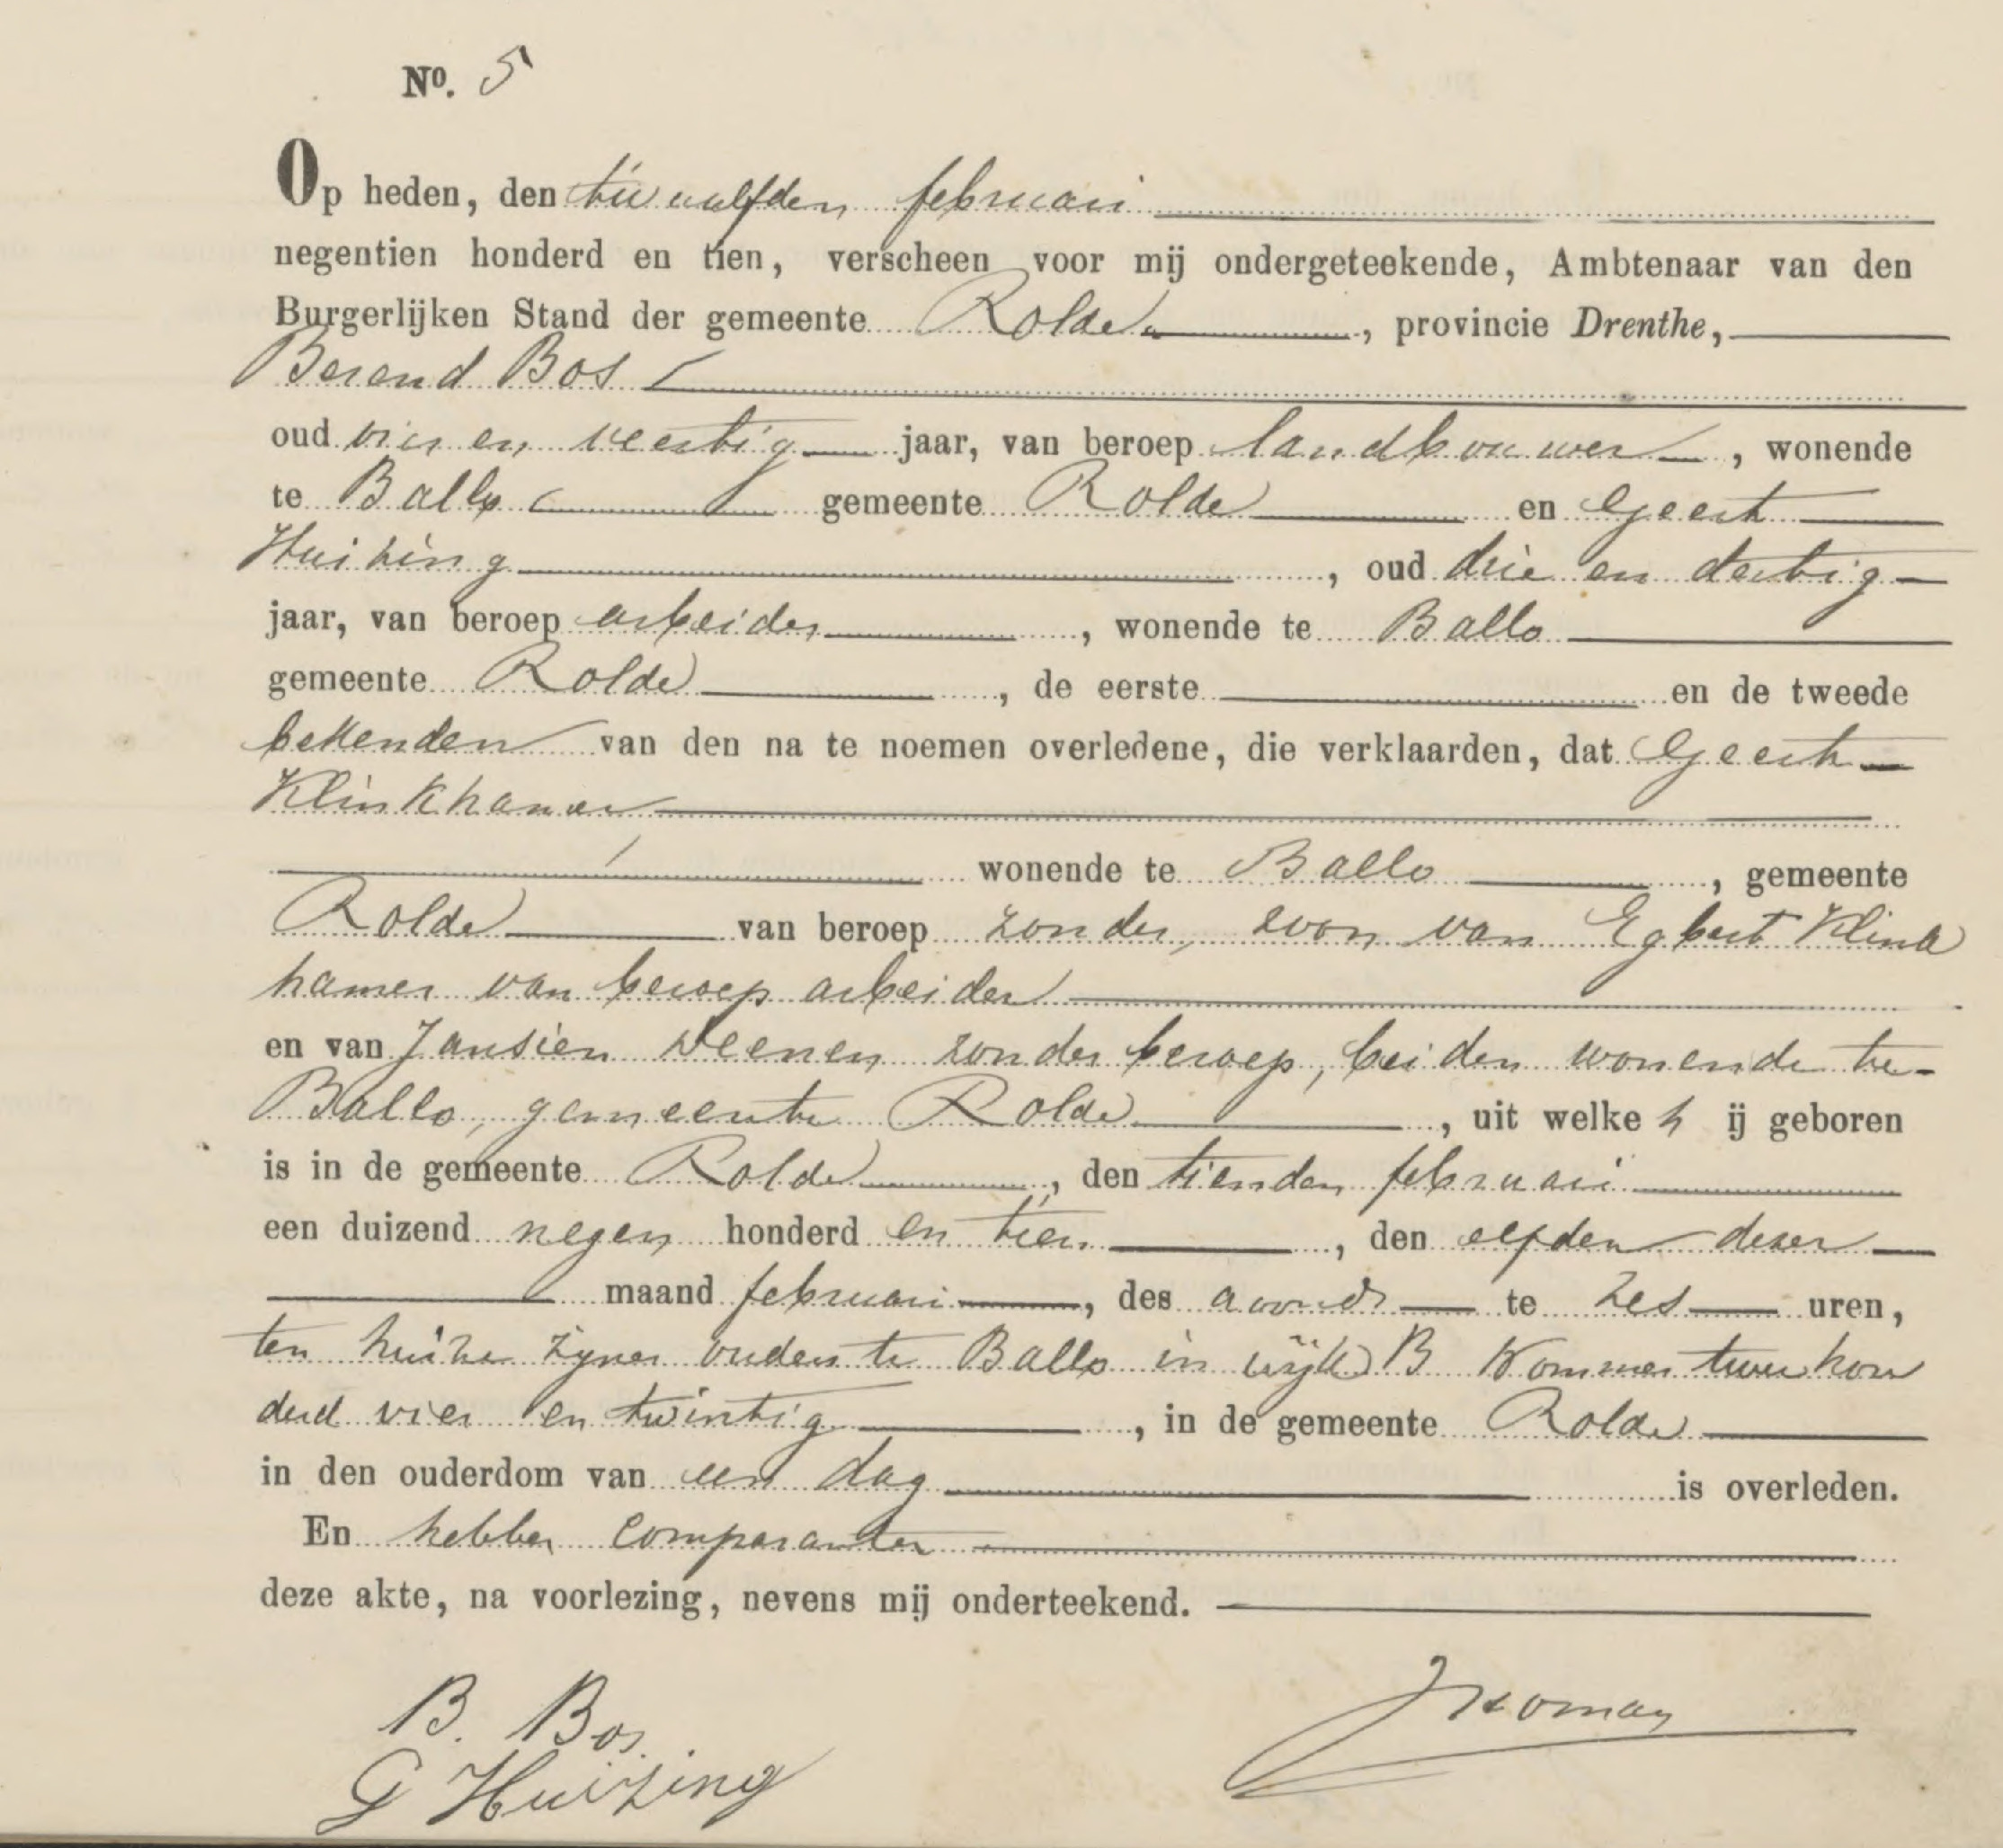 No. 5
Op heden, den twaalfden februari
negentien honderd en tien, verscheen voor mij ondergeteekende, Ambtenaar van den
Burgerlijken Stand der gemeente Rolde, provincie Drenthe,
Berend Bos
oud vier en veertig jaar, van beroep landbouwer, wonende
te Ballo gemeente Rolde en Geert
Huizing, oud drie en dertig
jaar, van beroep arbeider, wonende te Ballo
gemeente Rolde, de eerste en de tweede
bekenden van den na te noemen overledene, die verklaarden, dat Geert
Klinkhamer
wonende te Ballo, gemeente
Rolde van beroep zonder, zoon van Egbert Klink
hamer van beroep arbeider
en van Jansien Veenen zonder beroep, beiden wonende te
Ballo, gemeente Rolde, uit welke h ij geboren
is in de gemeente Rolde, den tienden februari
een duizend negen honderd en tien, den elfden dezer
maand februari, des avonds te zes uren,
ten huize zijner ouders te Ballo in wijk B Nommer twee hon
derd vier en twintig, in de gemeente Rolde
in den ouderdom van een dag is overleden.
En hebben comparanten
deze akte, na voorlezing, nevens mij onderteekend.
B. Bos
G Huizing